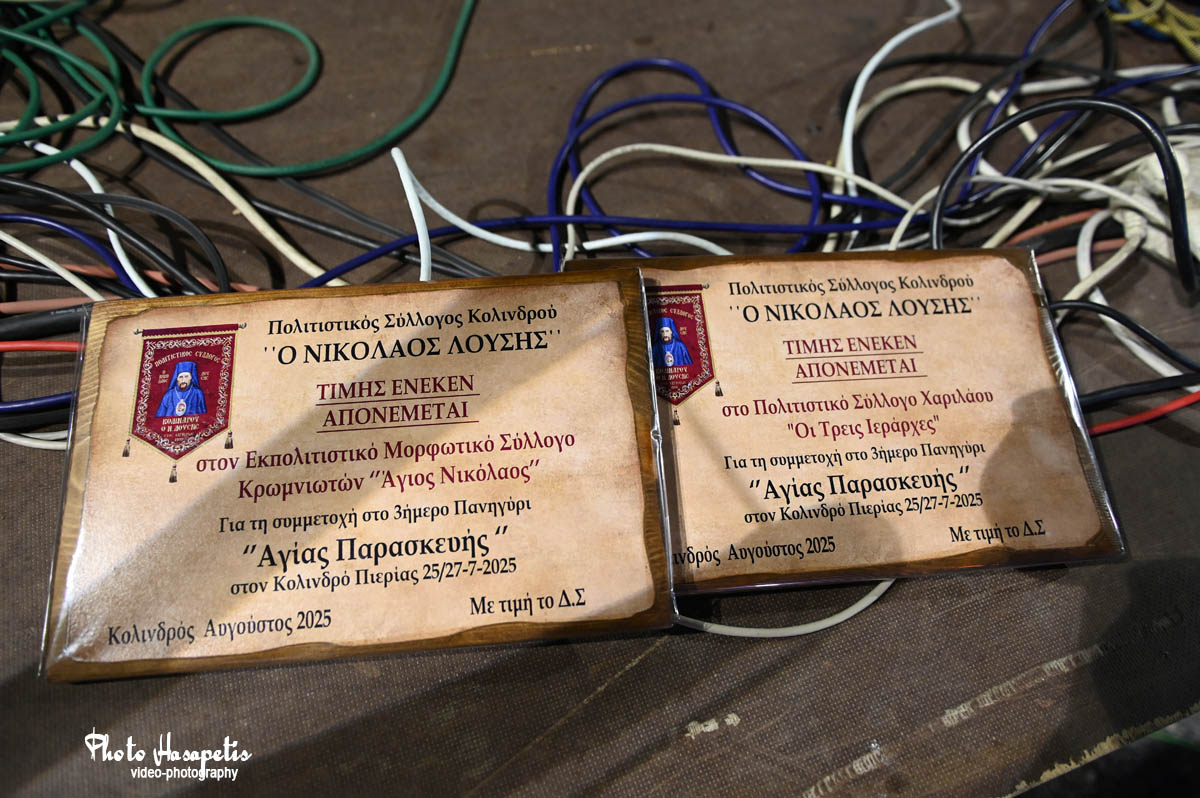 Πολιτιστικός Σύλλογος Κολινδρού
''Ο ΝΙΚΟΛΑΟΣ ΛΟΥΣΗΣ''
ΤΙΜΗΣ ΕΝΕΚΕΝ
ΑΠΟΝΕΜΕΤΑΙ
στον Εκπολιτιστικό Μορφωτικό Σύλλογο
Κρωμνιωτών ‘‘Άγιος Νικόλαος’’
Για τη συμμετοχή στο 3ήμερο Πανηγύρι
‘‘Αγίας Παρασκευής ‘‘
στον Κολινδρό Πιερίας 25/27-7-2025
Με τιμή το Δ.Σ
Κολινδρός Αυγούστος 2025
ΠΟΛΙΤΙΣΤΙΚΟΣ ΣΥΛΛΟΓΟΣ
ΚΟΛΙΝΔΡΟΥ
Πολιτιστικός Σύλλογος Κολινδρού
''Ο ΝΙΚΟΛΑΟΣ ΛΟΥΣΗΣ''
ΤΙΜΗΣ ΕΝΕΚΕΝ
ΑΠΟΝΕΜΕΤΑΙ
στο Πολιτιστικό Σύλλογο Χαριλάου
"Οι Τρεις Ιεράρχες"
Για τη συμμετοχή στο 3ήμερο Πανηγύρι
‘‘Αγίας Παρασκευής ‘‘
στον Κολινδρό Πιερίας 25/27-7-2025
Με τιμή το Δ.Σ
ινδρός Αυγούστος 2025
Photo Hasapetis
video-photography